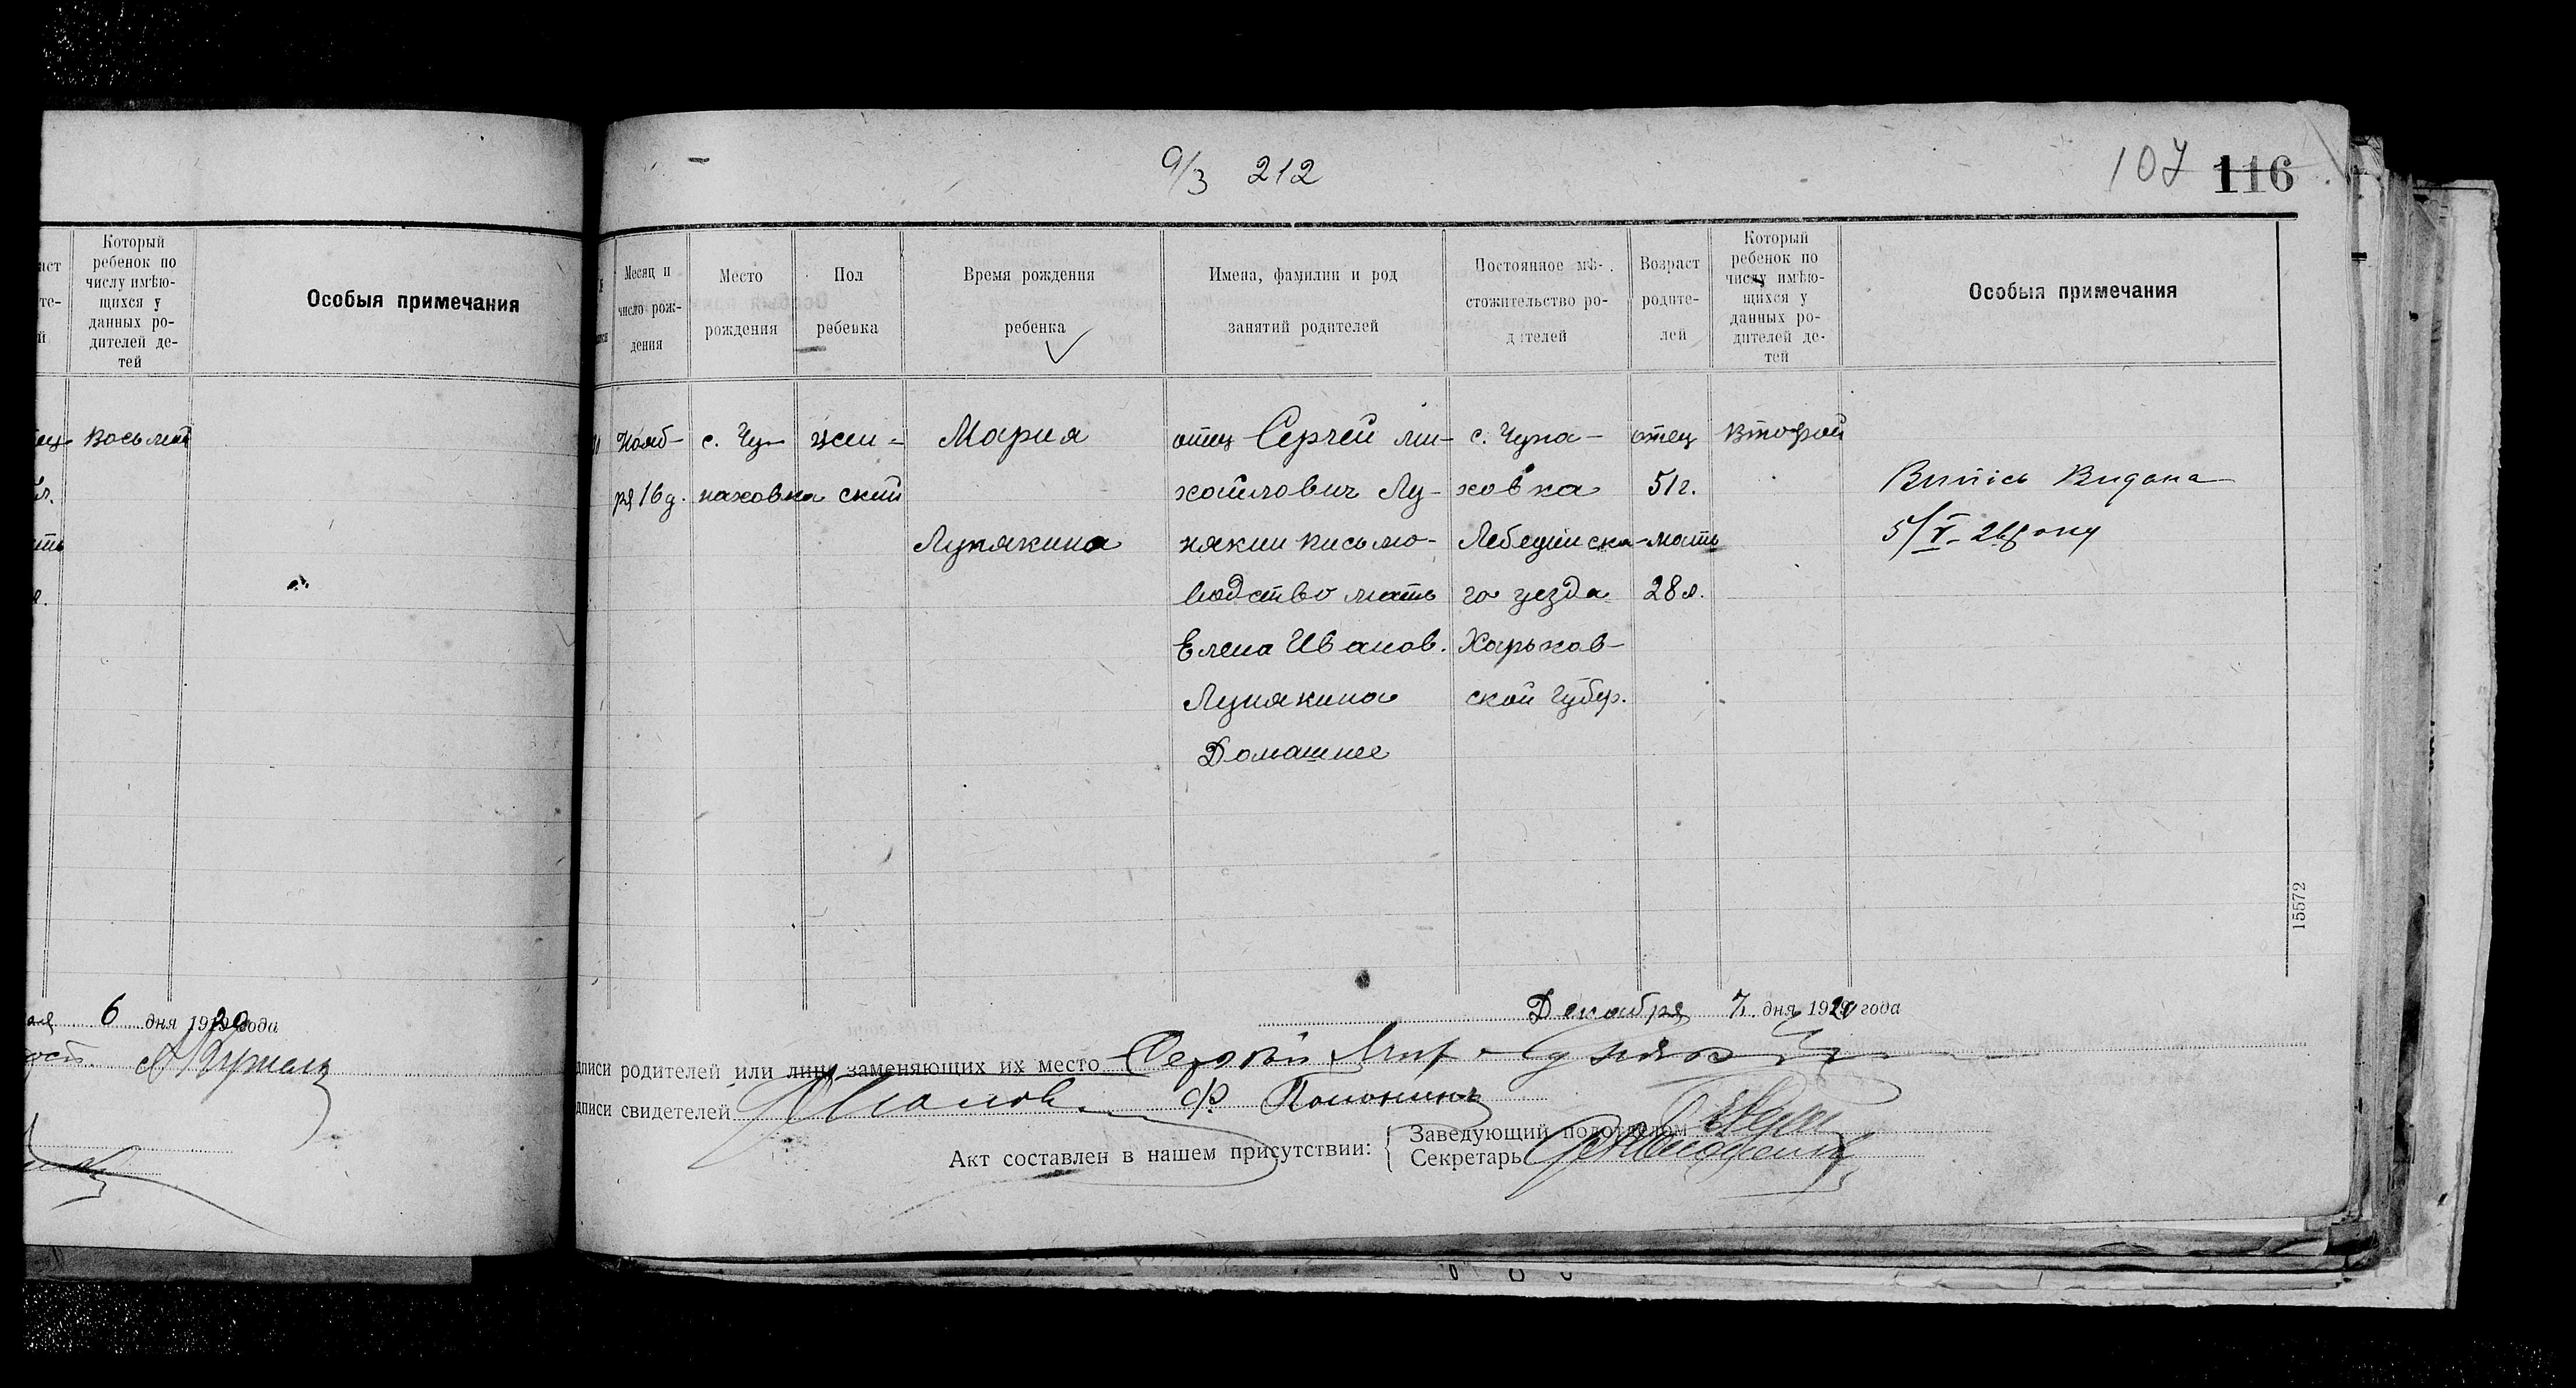 0/3 212
107 116
Который
ребенок по
числу имѣю-
щихся у
данных ро-
дителей де-
тей
Особыя примечания
Восьмой
6 дня 1920 года
Месяц и
число рож-
дения
Место
рождения
Пол
ребенка
Время рождения
ребенка
Имена, фамилии и род
занятий родителей
Постоянное мѣ-
стожительство ро-
дителей
Возраст
родите-
лей
Который
ребенок по
числу имѣю-
щихся у
данных ро-
дителей де-
тей
Особыя примечания
Нояб-
ря 16 д.
с. Чу-
паховка
жен-
ский
Мария
Лунякина
отец Сергей Ми-
хайлович Лу-
някин письмо-
водство мать
Елена Иванов.
Лунякина
Домашнее
с. Чупа-
ховка
Лебединска-
го уезда
Харьков-
ской Губер.
отец
51 г.
мать
28 л.
Второй
Випись Видана
5/V
15572
Декабря 7 дня года
дписи родителей или лиц заменяющих их место
дписи свидетелей
Акт составлен в нашем присутствии:
Заведующий подотделом
Секретарь